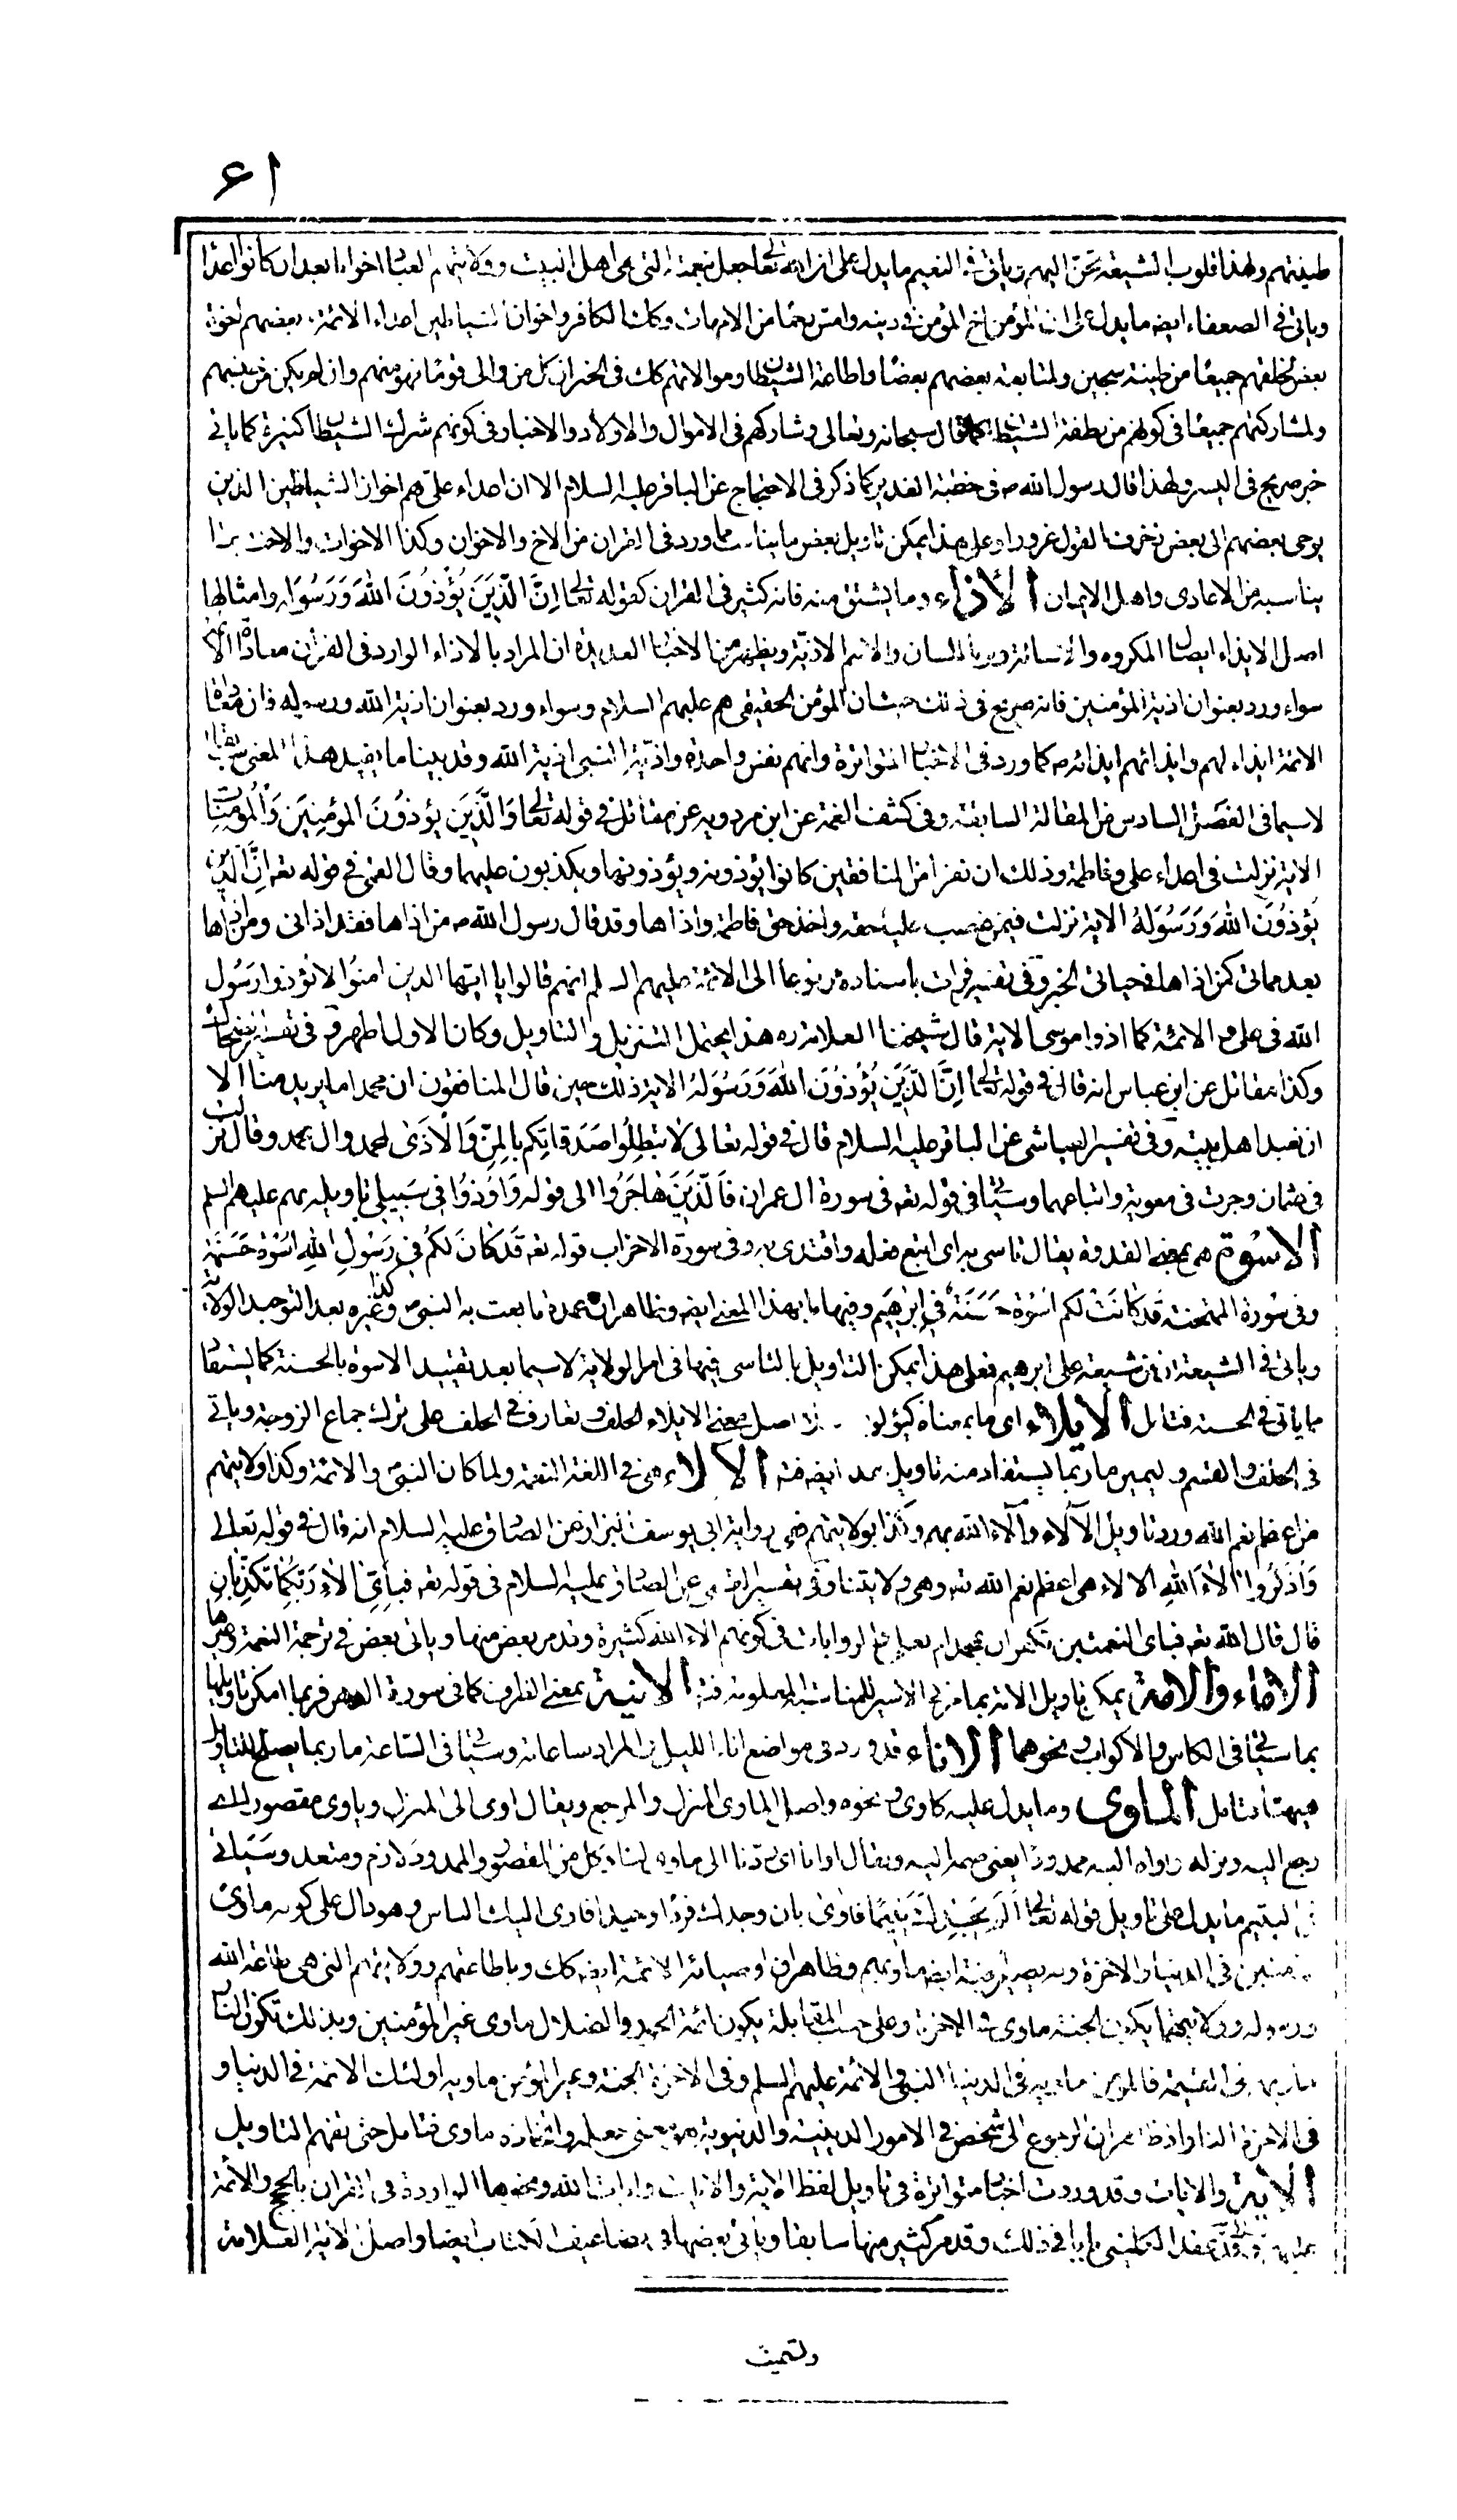 ٦١
طينتهم ولهذا قلوب الشيعة تحن اليهم ويأتى فى النعيم ما يدل على ان الله تعا جعل نعمته التى هى اهل البيت وولايتهم العباد اخوانا بعد ان كانوا اعدا
ويأتى فى الصعفاء ايضه ما يدل على ان المؤمن اخ المؤمن فى دينه وكك الكافر واخوان الشياطين اعداء الائمة بعضهم اخوة
بعض لخلقهم جميعًا من طينة سجين ولمتابعة بعضهم بعضًا واطاعة الشيطان وموالاتهم كك فى الخبر ان كل من والى قومًا فهو منهم وان لم يكن من جنسهم
ولمشاركتهم جميعًا فى كونهم من نطفة الشيطان كما قال سبحانه وتعالى وشاركهم فى الاموال والاولاد والاخبار فى كونهم شرك الشيطان كثيرة كما ياتى
خبر صريح فى اليسر ولهذا قال رسول الله ص فى خطبة الغدير كما ذكر فى الاحتجاج عن الباقر عليه السلام الا ان اعداء على هم اخوان الشياطين الذين
يوحى بعضهم الى بعض زخرف القول غرورا وعلى هذا يمكن تاويل بعض ما يناسب مما ورد فى القران من الاخ والاخوان وكذا الاخوات والاخت بما
يناسبه من الاعادى واهل الايمان الأذاء وما يشتق منه فانه كثير فى القران كقوله تعا اِنَّ الَّذِينَ يُؤْذُونَ اللهَ وَرَسُولَه وامثالها
اصل الايذاء ايصال المكروه والاسائة ولو باللسان والاسم الاذية ويظهر من الاخبار العديدة ان المراد بالاذاء الوارد فى القران معاداة الائمة
سواء ورد بعنوان اذية المؤمنين فانه صريح فى ذلك حيث ان المؤمن الحقيقى هم عليهم السلام وسواء ورد بعنوان اذية الله ورسوله فان معاداة
الائمة ايذاء لهم وايذائهم ايذائه ص كما ورد فى الاخبار المتواترة وانهم نفس واحدة واذية النبى اذية الله وقد بينا ما يفيد هذا المعنى سابقا
لاسيما فى الفصل السادس من المقالة السابقة وفى كشف الغمة عن ابن مردويه عن مقاتل فى قوله تعا وَالَّذِينَ يُؤْذُونَ المُؤمِنِينَ وَالْمُؤْمِنَاتِ
الاية نزلت فى اعداء على وفاطمة وذلك ان نفرا من المنافقين كانوا يؤذونه ويؤذونها ويكذبون عليهما وقال القمى فى قوله تعه اِنَّ الَّذِينَ
يُؤْذُونَ اللهَ وَرَسُولَهُ الاية نزلت فيمن غصب عليا حقه واخذ حق فاطمة واذاها وقد قال رسول الله ص من اذاها فقد اذانى ومن اذاها
بعد مماتى كمن اذاها فى حياتى الخبر وفى تفسير فرات باسناده مرفوعا الى الائمة عليهم السلم انهم قالوا يا ايها الذين امنوا لا تؤذوا رسول
الله فى على والائمة كما اذوا موسى الاية قال شيخنا العلامة ره هذا يحتمل التنزيل والتاويل وكان الاول اظهر وفى تفسير
وكذا مقاتل عن ابن عباس انه قال فى قوله تعا اِنَّ الَّذِينَ يُؤْذُونَ اللهَ وَرَسُولَهُ الاية ذلك حين قال المنافقون ان محمدا ما يريد منا الا
ان نعبد اهل بيته وفى تفسير العياشى عن الباقر عليه السلام قال فى قوله تعالى لا تُبْطِلُوا صَدَقاتِكُم بِالمَنِّ وَالْأَذى لمحمد وال محمد وقال نزلت
فى عثمان وجرت فى معوية واتباعهما وسياتى فى قوله تعه فى سورة ال عمران فَالَّذِينَ هَاجَرُوا الى قوله وَاُوذُوا فى سَبِيلِى تاويله بهم عليهم السلم
الاسوة هى بمعنى القدوة يقال تاسى به اى اتبع فعله واقتدى به وفى سورة الاحزاب قوله تعه قَدْ كَانَ لَكُمْ فِى رَسُولِ اللهِ اُسْوَةٌ حَسَنَةٌ
وفى سورة الممتحنة قَد كَانَتْ لَكم اُسْوَةٌ حَسَنَةٌ فِى اِبْرهِيم وفيها ما بهذا المعنى ايضه وظاهر ان عمدة ما بعث به النبى ص وكذا غيره بعد التوحيد الولاية
وياتى فى الشيعة ان من شيعة على ابرهيم فعلى هذا يمكن التاويل بالتاسى فيها فى امر الولاية لاسيما بعد تقييد الاسوة بالحسنة كما يستفاد
مما ياتى فى الحسنة فتامل الأيلاء اى ما بمعناه كيؤلون اصل معنى الايلاء الحلف وتعارف فى الحلف على ترك جماع الزوجة وياتى
فى الحلف والقسم واليمين ما ربما يستفاد منه تاويل هذا ايضه فته الآلاء هى فى اللغة النعمة ولما كان النبى ص والائمة وكذا ولايتهم
من اعظم نعم الله ورد تاويل الآلاء وآلاء الله بهم وكذا بولايتهم ففى رواية ابى يوسف البزاز عن الصادق عليه السلام انه قال فى قوله تعالى
وَاذْكُرُوا آلاءَ اللهِ الالاء هى اعظم نعم الله وهى ولايتنا وفى تفسير القمى عن الصادق عليه السلام فى قوله تعه فَبِاَىِّ الآءِ رَبِّكُمَا تُكَذِّبَانِ
قال قال الله تعه فباى النعمتين تكفران بمحمد ام بعلى الروايات فى كونهم الاء الله كثيرة وقد مر بعض منها وياتى بعض فى ترجمة النعمة وغيرها
الاماء والامة يمكن تاويل الامة بما مر فى الاسير للمناسبة المعلومة فته الانية بمعنى الظروف كما فى سورة الدهر فربما امكن تاويلها
بما سياتى فى الكاس والاكواب ونحوهما الاناء قد ورد فى مواضع اناء الليل والمراد ساعاته وسياتى فى الساعة ما ربما يصلح للتاويل
فيهما فتامل الماوى وما يدل عليه كاوى ونحوه واصل الماوى المنزل والمرجع ويقال اوى الى المنزل وياوى مقصورا اى
رجع اليه ونزله واواه اليه ممدودا يعنى ضمه اليه ويقال اوانا اى ردنا الى ماوى لنا وكل من المقصور والممدود لازم ومتعد وسياتى
فى اليتيم ما يدل على تاويل قوله تعا اَلَمْ يَجِدْكَ يَتِيمًا فاوى بان وجدك فردًا وحيدا فاوى اليك الناس وهو دال على كونه ماوى
المؤمنين فى الدنيا والاخرة وظاهر ان اوصيائه الائمة ايضه كك وباطاعتهم وولايتهم التى هى طاعة الله
ورسوله وولايتهما يكون الجنة ماوى فى الاخرة وعلى حسب المقابلة يكون ائمة الجور والضلال ماوى غير المؤمنين وبذلك تكون النار
ماويهم فى القيمة فالمؤمن ماويه فى الدنيا النبى والائمة عليهم السلم وفى الاخرة الجنة وغير المؤمن ماويه اولئك الائمة فى الدنيا و
فى الاخرة النار اذ ظاهر ان الرجوع الى شخص فى الامور الدينية والدنيوية هو بمعنى جعله واتخاذه ماوى فتامل حتى تفهم التاويل
الآية والايات وقد وردت اخبار متواترة فى تاويل لفظ الاية والايات وايات الله ونحوها الواردة فى القران بالحجج والائمة
عليهم وقد عقد الكلينى بابا فى ذلك وقد مر كثير منها سابقا وياتى بعضها فى تضاعيف الكتاب ايضا واصل الاية العلامة
ولتميت